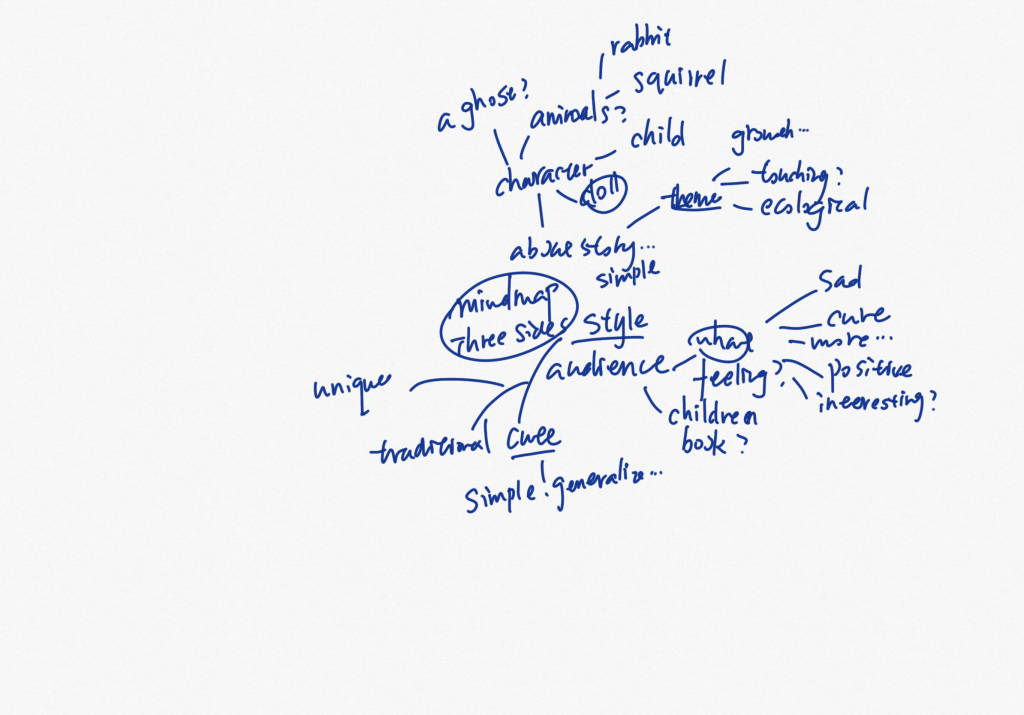 rabbit
squirrel
a ghose?
animals?
child
growth...
character
doll
theme
touching?
ecological
about story...
simple
mindmap
three sides
style
audience
what
feeling?
sad
cure
more...
positive
interesting?
children
book?
unique
traditional
cute
simple! generalize...